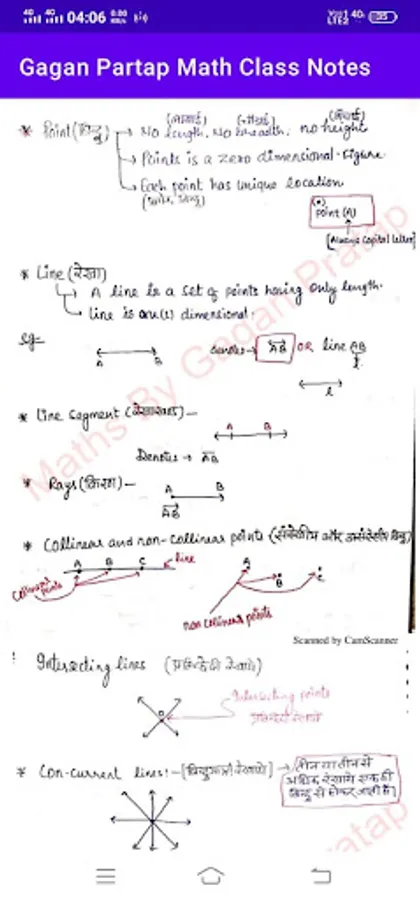 04:06
Gagan Partap Math Class Notes
* Point (बिन्दु) → No length, No breadth, no height
(लम्बाई) (चौड़ाई) (ऊँचाई)
→ Points is a zero dimensional figure
→ Each point has unique location
point (A)
[Always capital letter]
* Line (रेखा)
→ A line is a set of points having only length.
→ line is one(1) dimensional.
eg-
A B
denotes → AB OR line AB
l
l
* Line segment (रेखाखण्ड) -
A B
Denotes → AB
* Rays (किरण) -
A B
AB
* Collinear and non-collinear points
A B C line
collinear points
A B C
non collinear points
Scanned by CamScanner
Intersecting lines (प्रतिच्छेदी रेखाएं)
Intersecting points
* Con-current lines:-
तीन या तीन से
अधिक रेखाएं एक ही
बिन्दु से होकर जाती है।
Maths By Gagan Pratap